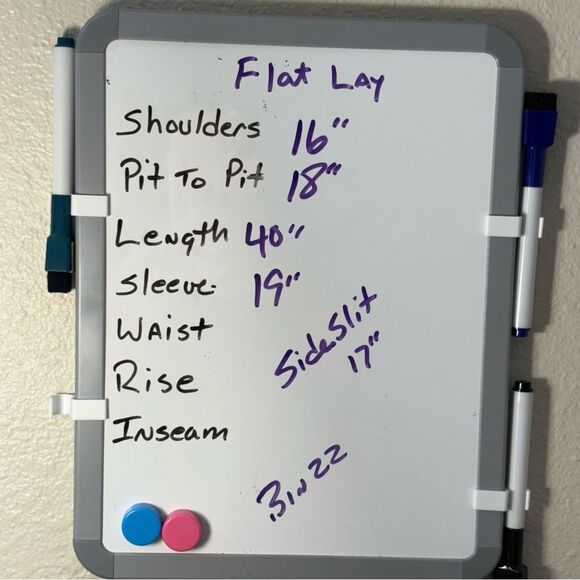 Flat Lay
Shoulders 16"
Pit To Pit 18"
Length 40"
Sleeve 19"
Waist
Side Slit
17"
Rise
Inseam
Bin 22